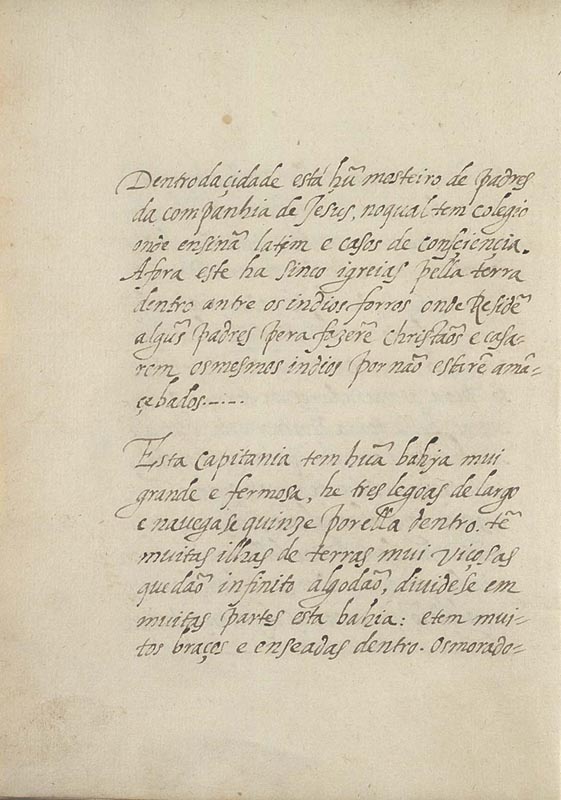 Dentro da çidade está hũ mosteiro de padres
da companhia de Jesus, no qual tem colegio
onde ensinã latim e casos de conſçiençia.
Afora este ha sinco igreias pella terra
dentro antre os indios forros onde Residẽ
algũs padres pera fazerẽ christaõs e casa-
rem os mesmos indios por não estarẽ amã-
çebados.——
Esta Capitania tem hũa bahya mui
grande e fermosa, he tres legoas de largo
e navegase quinze por ella dentro. tẽ
muitas ilhas de terras mui viçosas
que daõ infinito algodaõ, dividese em
muitas partes esta bahia: e tem mui-
tos braços e enseadas dentro. Os morado-